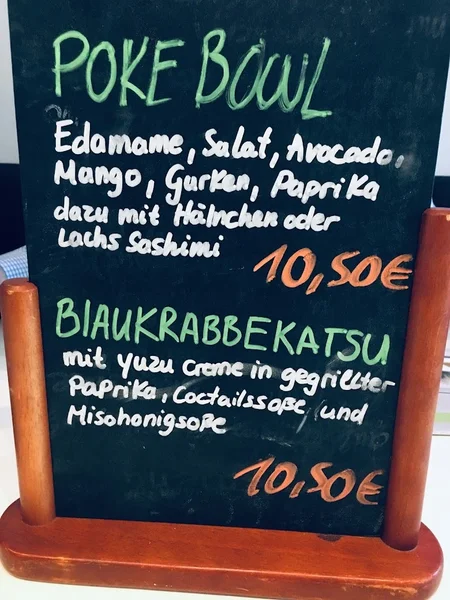 POKE BOWL
Edamame, Salat, Avocado,
Mango, Gurken, Paprika
dazu mit Hähnchen oder
Lachs Sashimi
10,50€
BLAUKRABBEKATSU
mit yuzu creme in gegrillter
Paprika, Coctailssoße und
Misohonigsoße
10,50€